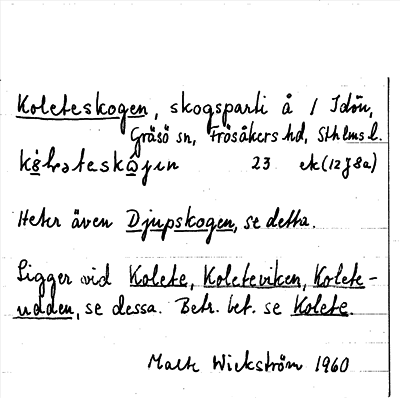 Koleteskogen, skogsparti å / Idön,
Gräsö sn, Frösåkers hd, Sthlms l.
23 ek (12 J 8a)
Heter även Djupskogen, se detta.
Ligger vid Kolete, Koleteviken, Kolete-
udden, se dessa. Betr. bet. se Kolete.
Malte Wickström 1960